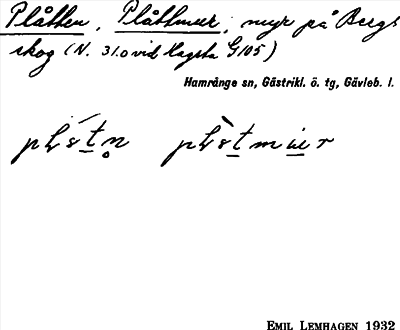 Plåtten, Plåttmur, myr på Bergs
skog (N. 31.o vid Hagsta G105)
Hamrånge sn, Gästrikl. ö. tg, Gävleb. l.
EMIL LEMHAGEN 1932